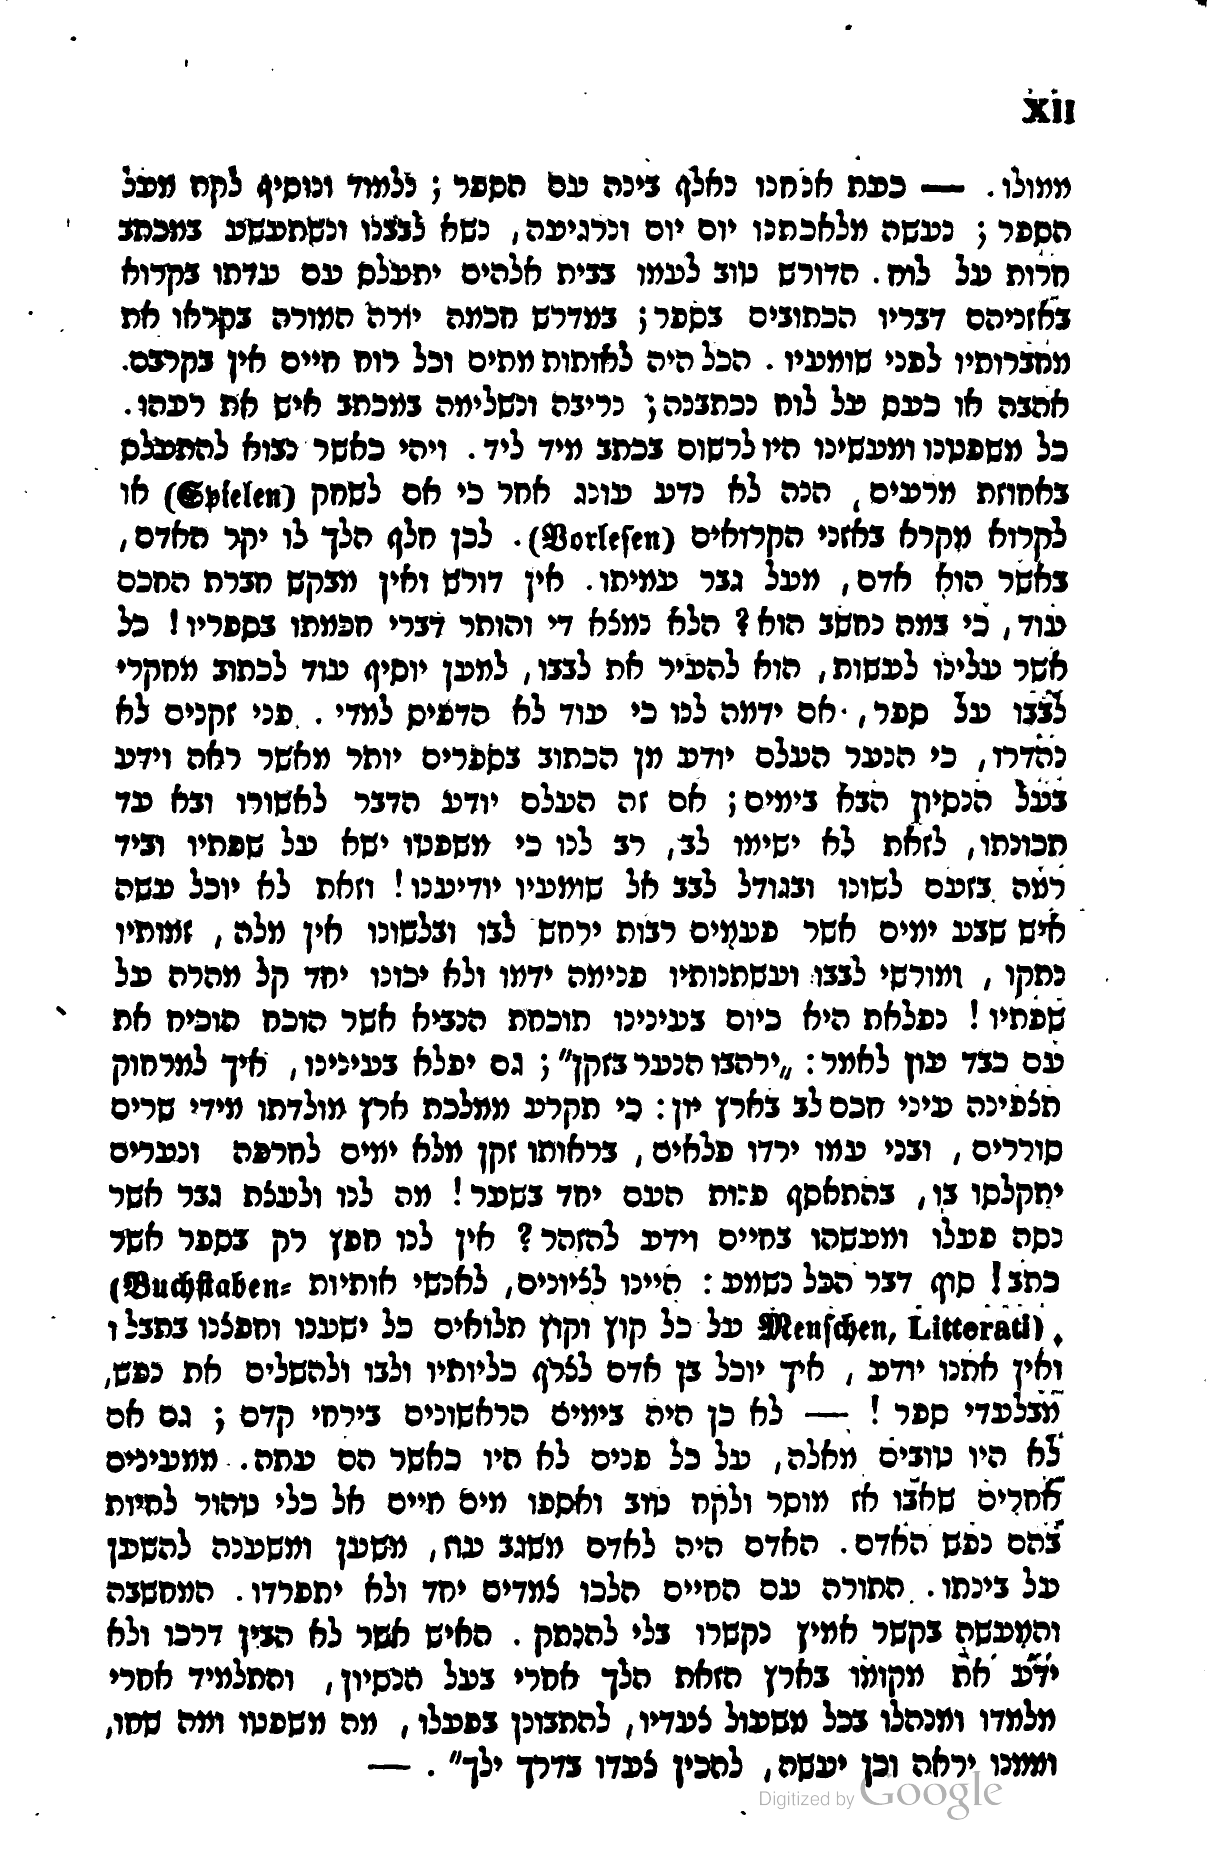 XII
ממולו. — כעת אנחנו נאלף בינה עם הספר; נלמוד ונוסיף לקח מעל
הספר; נעשה מלאכתנו יום יום ונרגיעה, נשא לבבנו ונשתעשע במכתב
חרות על לוח. הדורש טוב לעמו בבית אלהים יתעלס עם עדתו בקרוא
באזניהם דבריו הכתובים בספר; במדרש חכמה יורה המורה בקראו את
מחברותיו לפני שומעיו. הכל היה לאותות מתים וכל רוח חיים אין בקרבם.
אהבה או כעס על לוח נכתבנה; נריבה ונשלימה במכתב איש את רעהו.
כל משפטנו ומעשינו היו לרשום בכתב מיד ליד. ויהי כאשר נצוא להתעלס
באחוזת מרעים, הנה לא נדע עונג אחר כי אם לשחק (Spielen) או
לקרוא מקרא באזני הקרואים (Vorlesen). לכן חלף הלך לו יקר האדם,
באשר הוא אדם, מעל גבר עמיתו. אין דורש ואין מבקש חברת החכם
עוד, כי במה נחשב הוא? הלא נמצא די והותר דברי חכמתו בספריו! כל
אשר עלינו לעשות, הוא להעיר את לבבו, למען יוסיף עוד לכתוב מחקרי
לבבו על ספר, אם ידמה לנו כי עוד לא הדפיס למדי. פני זקנים לא
נהדרו, כי הנער העלם יודע מן הכתוב בספרים יותר מאשר ראה וידע
בעל הנסיון הבא בימים; אם זה העלם יודע הדבר לאשורו ובא עד
תכונתו, לזאת לא ישימו לב, רב לנו כי משפטו ישא על שפתיו וביד
רמה בזעם לשונו ובגודל לבב אל שומעיו יודיענו! וזאת לא יוכל עשה
איש שבע ימים אשר פעמים רבות ירחש לבו ובלשונו אין מלה, זמותיו
נתקו, ומורשי לבבו ועשתנותיו פנימה ידמו ולא יכונו יחד קל מהרה על
שפתיו! נפלאת היא כיום בעינינו תוכחת הנביא אשר הוכח הוכיח את
עם כבד עון לאמר: „ירהבו הנער בזקן"; גם יפלא בעינינו, איך למרחוק
תצפינה עיני חכם לב בארץ יון: כי תקרע ממלכת ארץ מולדתו מידי שרים
סוררים, ובני עמו ירדו פלאים, בראותו זקן מלא ימים לחרפה ונערים
יתקלסו בו, בהתאסף פנות העם יחד בשער! מה לנו ולעצת גבר אשר
נסה פעלו ומעשהו בחיים וידע להזהר? אין לנו חפץ רק בספר אשר
כתב! סוף דבר הכל נשמע: היינו לציונים, לאנשי אותיות (Buchstaben=
Menschen, Litterati) על כל קוץ וקוץ תלואים כל ישענו וחפצנו בתבל ו
ואין אתנו יודע, איך יוכל בן אדם לצרף כליותיו ולבו ולהשלים את נפש,
מבלעדי ספר! — לא כן היה בימים הראשונים בירחי קדם; גם אם
לא היו טובים מאלה, על כל פנים לא היו כאשר הם עתה. ממעינים
אחרים שאבו אז מוסר ולקח טוב ואספו מים חיים אל כלי טהור לחיות
בהם נפש האדם. האדם היה לאדם משגב עוז, משען ומשענה להשען
על בינתו. התורה עם החיים הלכו צמדים יחד ולא יתפרדו. המחשבה
והמעשה בקשר אמיץ נקשרו בלי להנתק. האיש אשר לא הבין דרכו ולא
ידע את מקומו בארץ הזאת הלך אחרי בעל הנסיון, והתלמיד אחרי
מלמדו ומנהלו בכל משעול צעדיו, להתבונן בפעלו, מה משפטו ומה שחו,
וממנו יראה וכן יעשה, להכין צעדו בדרך ילך". —
Digitized by Google